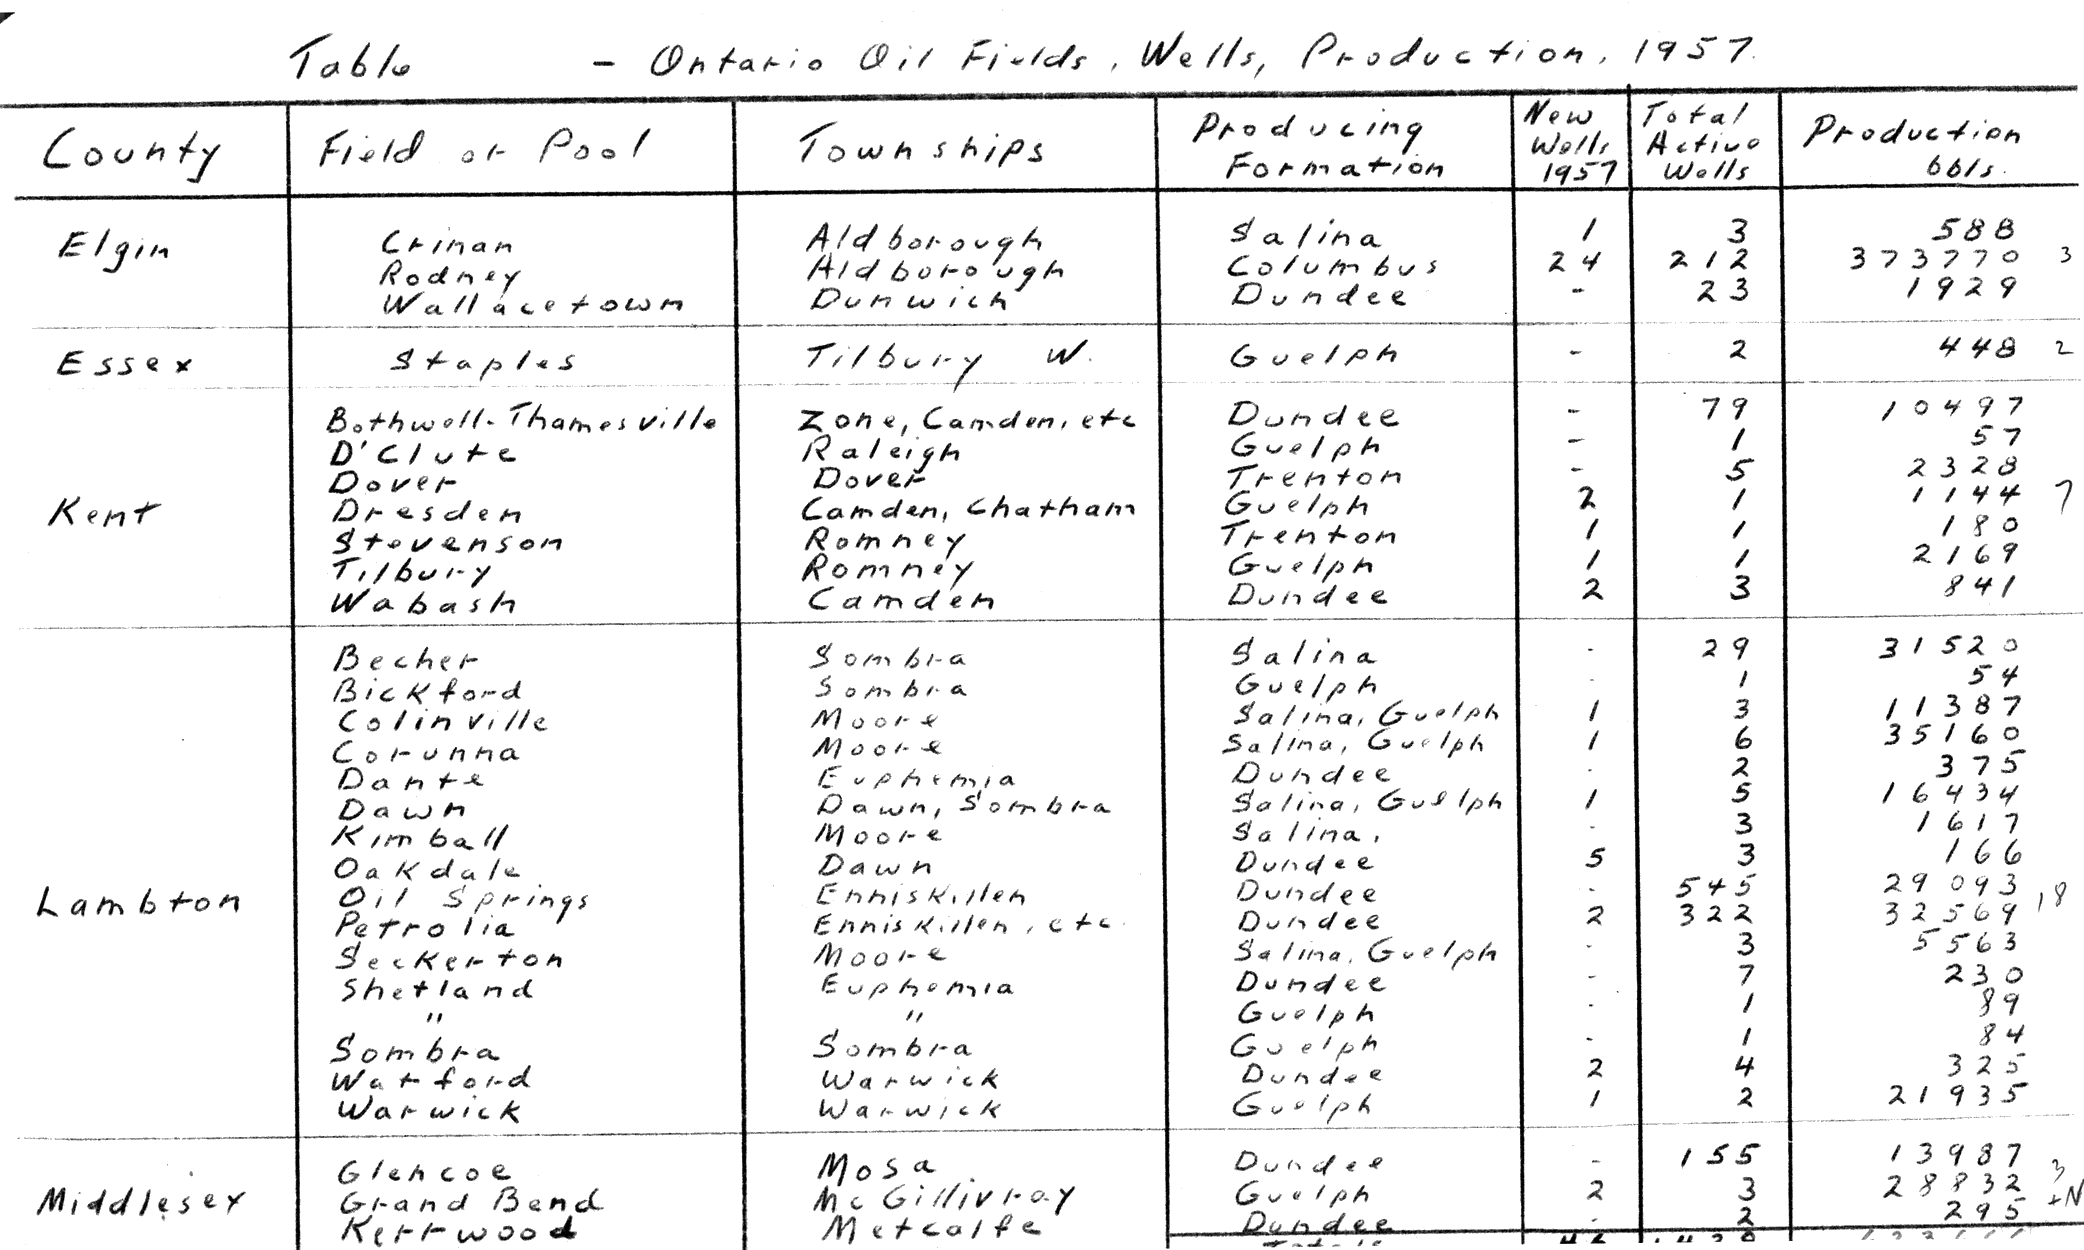 Table - Ontario Oil Fields, Wells, Production, 1957.
County Field or Pool Townships Producing Formation New Wells 1957 Total Active Wells Production bbls.
Elgin Crinan Aldborough Salina 1 3 588
Rodney Aldborough Columbus 24 212 373770 3
Wallacetown Dunwich Dundee - 23 1929
Essex Staples Tilbury W. Guelph - 2 448 2
Bothwell-Thamesville Zone, Camden, etc Dundee - 79 10497
D'Clute Raleigh Guelph - 1 57
Dover Dover Trenton - 5 2328
Kent Dresden Camden, Chatham Guelph 2 1 1144 7
Stevenson Romney Trenton 1 1 180
Tilbury Romney Guelph 1 1 2169
Wabash Camden Dundee 2 3 841
Becher Sombra Salina - 29 31520
Bickford Sombra Guelph - 1 54
Colinville Moore Salina, Guelph 1 3 11387
Corunna Moore Salina, Guelph 1 6 35160
Dante Euphemia Dundee - 2 375
Dawn Dawn, Sombra Salina, Guelph 1 5 16434
Kimball Moore Salina, - 3 1617
Oakdale Dawn Dundee 5 3 166
Lambton Oil Springs Enniskillen Dundee - 545 29093 18
Petrolia Enniskillen, etc. Dundee 2 322 32569
Seckerton Moore Salina, Guelph - 3 5563
Shetland Euphemia Dundee - 7 230
" " Guelph - 1 89
Sombra Sombra Guelph - 1 84
Watford Warwick Dundee 2 4 325
Warwick Warwick Guelph 1 2 21935
Glencoe Mosa Dundee - 155 13987 3
Middlesex Grand Bend McGillivray Guelph 2 3 28832 +N
Kerrwood Metcalfe Dundee - 2 295